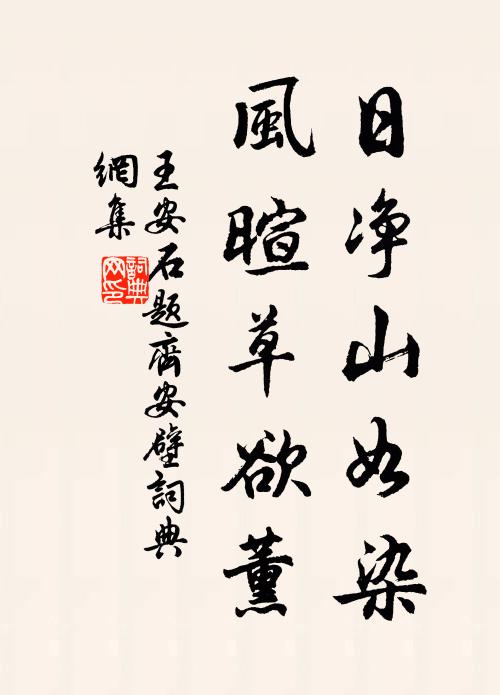 日净山如染
風暄草欲薰
王安石題齊安壁詞典
網集
詞典
网印